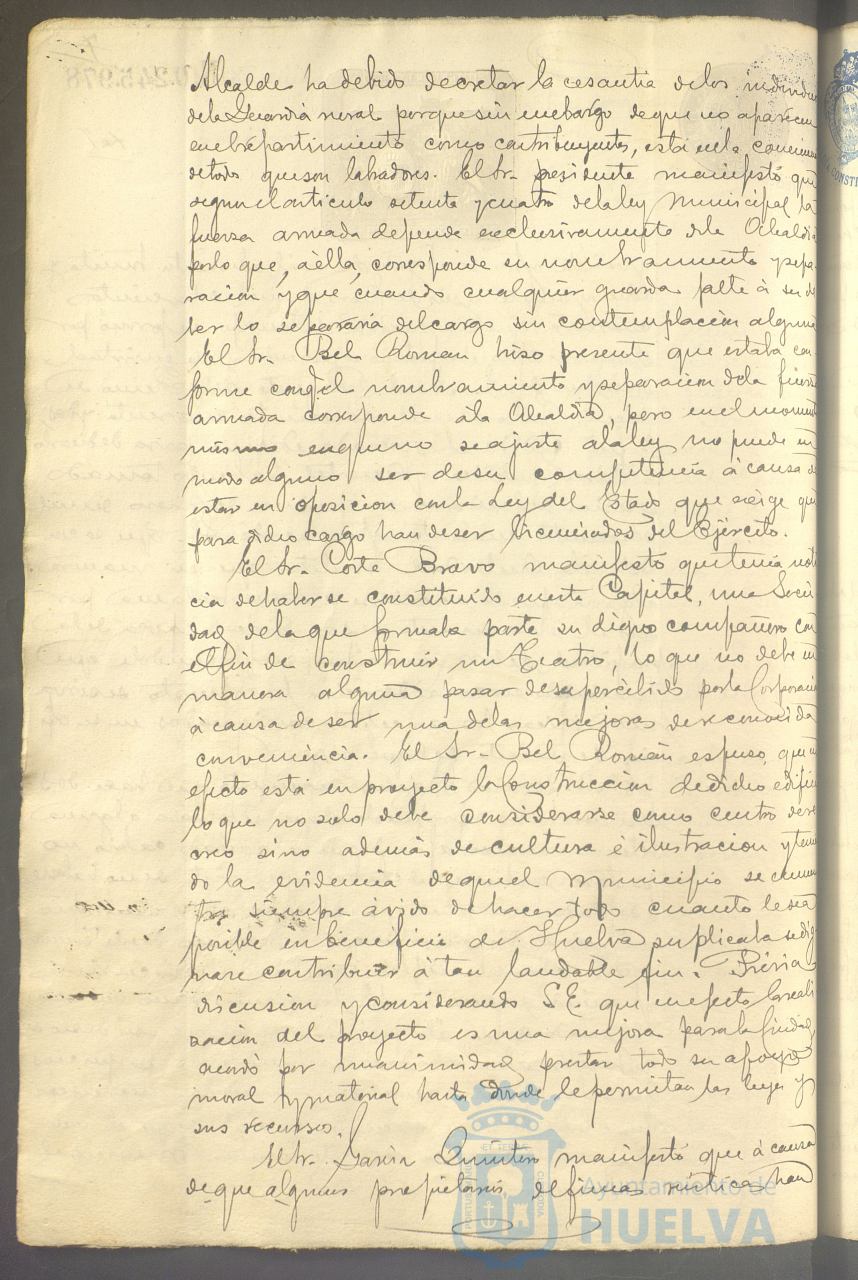 Alcalde ha debido decretar la cesantia de los individuos
de la Guardia rural porque sin embargo de que no aparecen
en el repartimiento como contribuyentes, está en la
de todo que son labradores. El Sr. presidente manifestó que
segun el articulo setenta y cuatro de la ley Municipal la
fuerza armada depende exclusivamente de la Alcaldia
por lo que, á ella, corresponde su nombramiento y sepa-
racion y que cuando cualquier guarda falte á su de-
ber lo separaria del cargo sin contemplacion alguna
El Sr. Bel Roman hiso presente que estaba con-
forme con q. el nombramiento y separacion de la fuerza
armada corresponde á la Alcaldia, pero en el momento
mismo en que no se ajuste a la ley no puede en
modo alguno ser de su competencia á causa de
estar en oposicion con la Ley del Estado que exige que
para dicho cargo han de ser licenciados del Ejército.
El Sr. Corte Bravo manifesto que tenia noti-
cia de haberse constituido en esta Capital, una Socie-
dad de la que formaba parte su digno compañero con
el fin de construir un Teatro, lo que no debe en
manera alguna pasar desapercibido por la Corporacion
á causa de ser una de las mejoras de reconocida
conveniencia. El Sr. Bel Román espuso, que en
efecto está en proyecto la Construccion de dicho edificio
lo que no solo debe considerarse como centro de re-
creo sino además de cultura é ilustracion y tenien-
do la evidencia de que el Municipio se
siempre ávido de hacer todo cuanto le sea
posible en beneficio de Huelva suplicaba se dig-
nare contribuir á tan laudable fin. Prévia
discusion y considerando S.E. que en efecto la reali-
zacion del proyecto es una mejora para la Ciudad,
acordó por unanimidad prestar todo su apoyo
moral y material hasta donde le permitan las leyes y
sus recursos.
El Sr. Garcia Quintero manifestó que á causa
de que algunos propietarios de fincas rústicas han
Ayuntamiento de
HUELVA